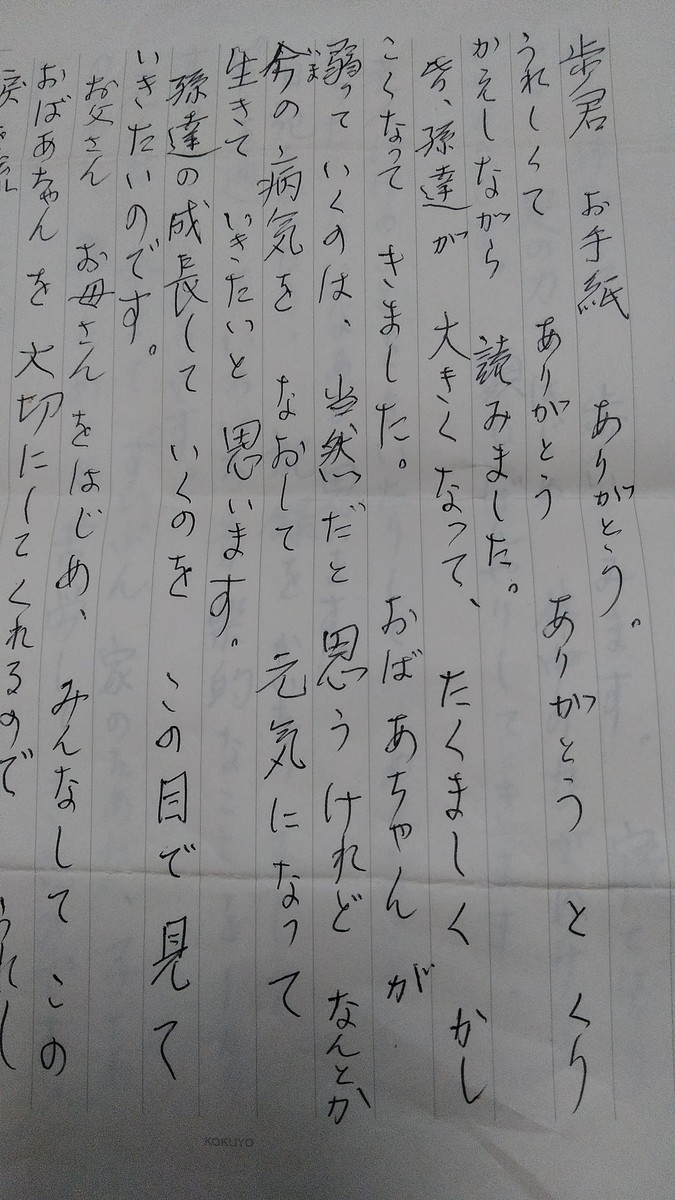 歩君 お手紙 ありがとう。
うれしくて ありがとう ありがとう とくり
かえしながら 読みました。
皆、孫達が 大きくなって、たくましく かし
こくなって きました。 おばあちゃんが
弱って いくのは、当然だと 思うけれど なんとか
今の、病気を なおして 元気になって
生きて いきたいと 思います。
孫達の成長して いくのを この目で 見て
いきたいのです。
お父さん お母さんをはじめ、 みんなして この
おばあちゃんを 大切にしてくれるので うれし
KOKUYO